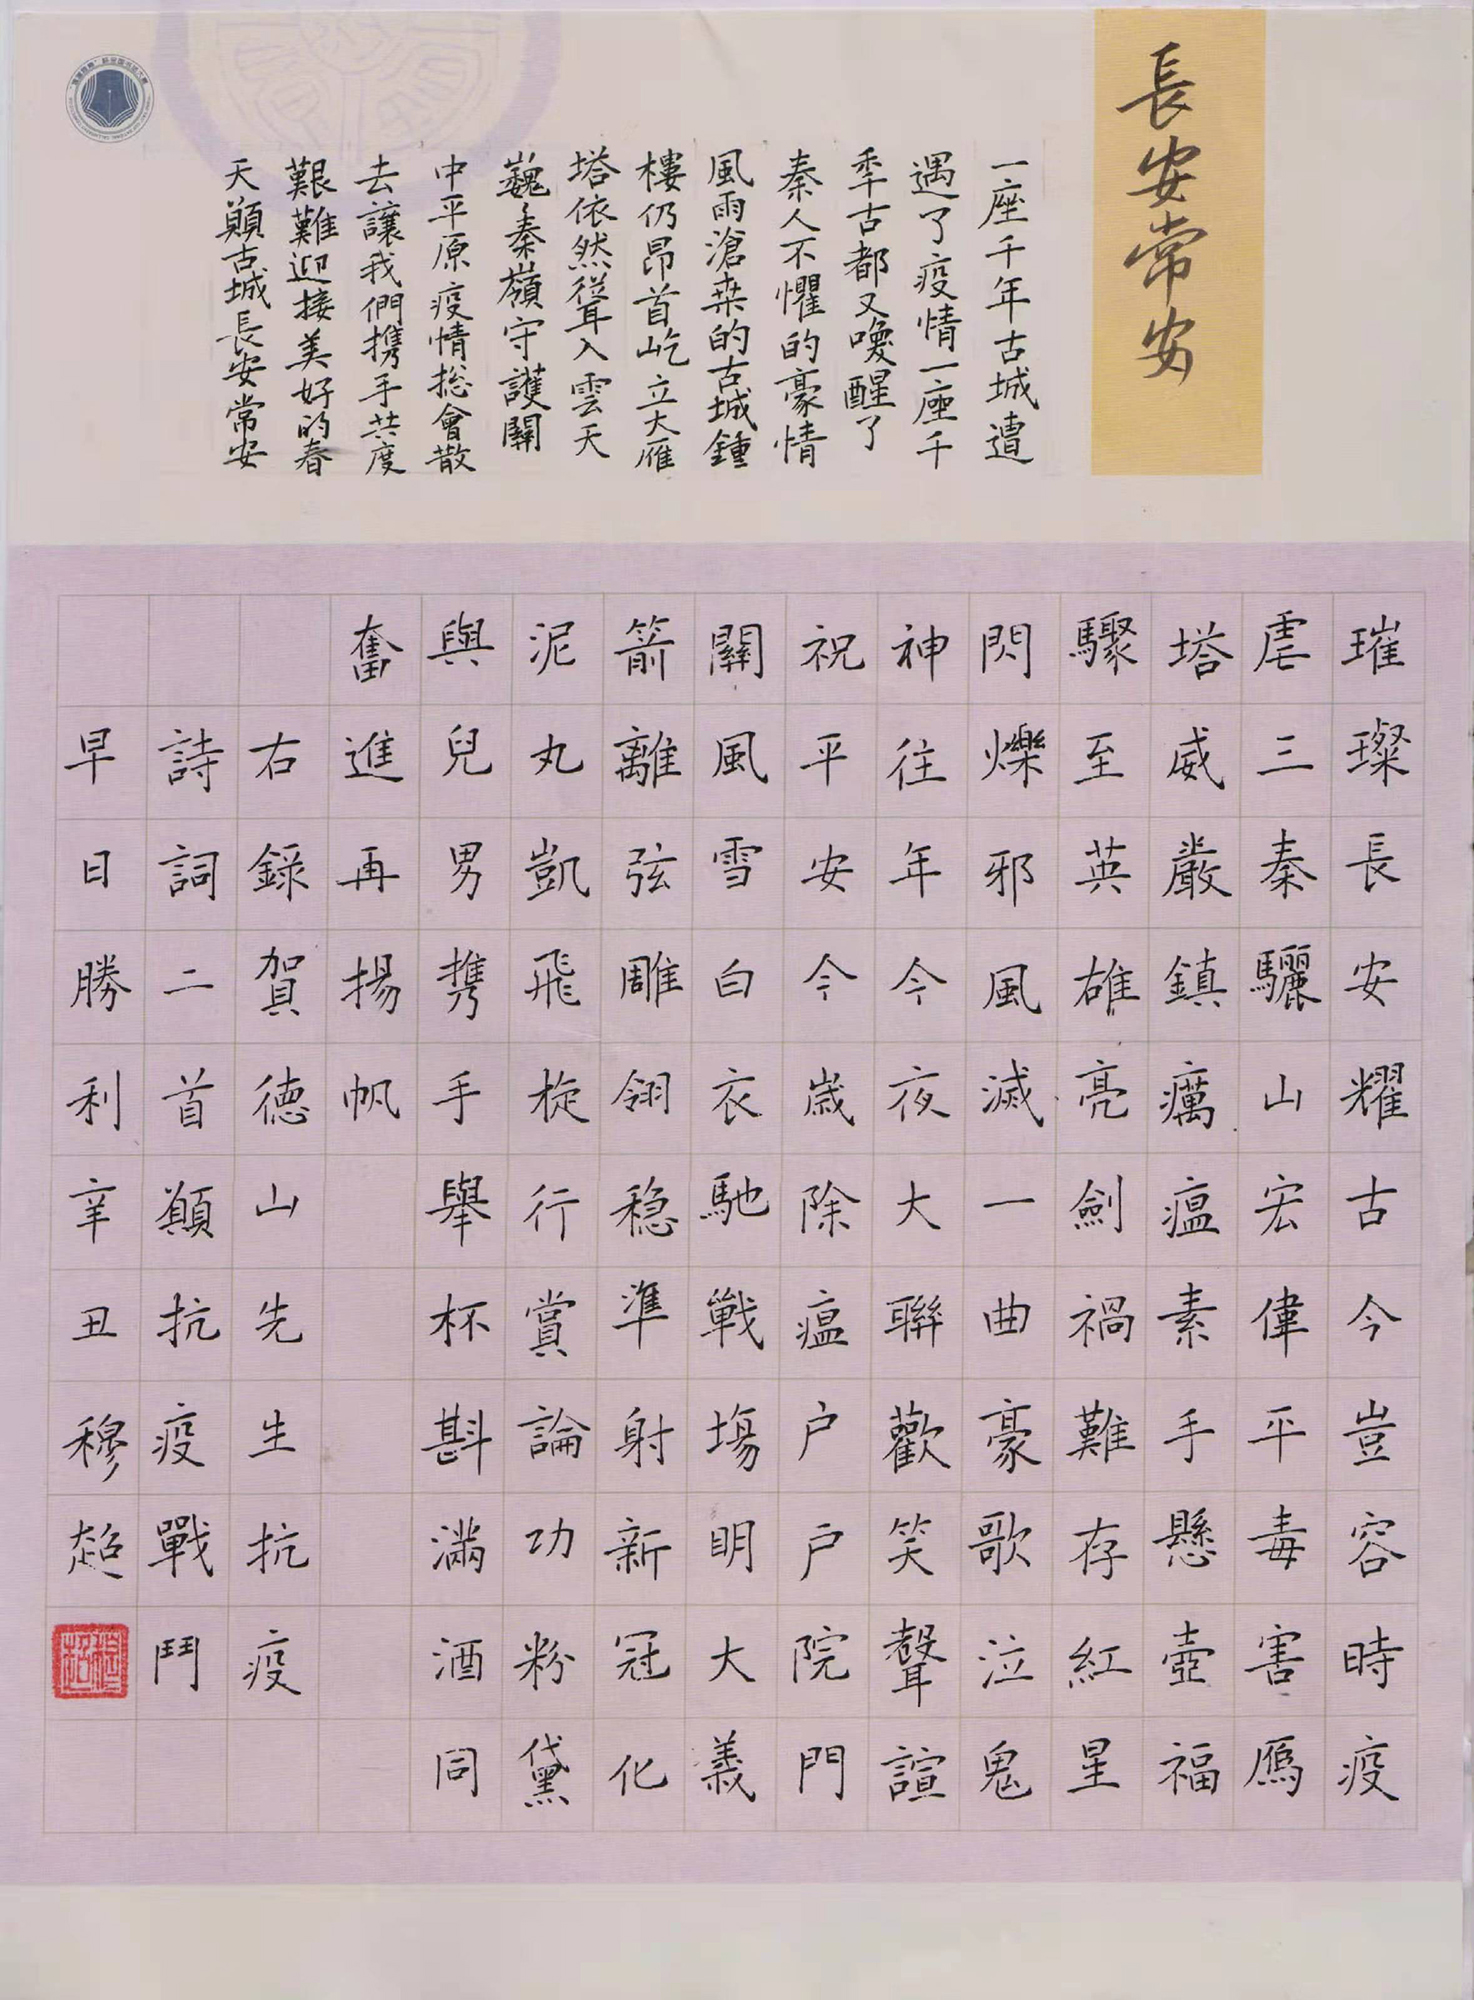 長安常安
一座千年古城遭
遇了疫情一座千
秊古都又喚醒了
秦人不懼的豪情
風雨滄桒的古城鍾
樓仍昂首屹立大雁
塔依然從耳入雲天
巍秦嶺守護關
中平原疫情總會散
去讓我們攜手共度
艱難迎接美好的春
天願古城長安常安
璀璨長安耀古今豈容時疫
虐三秦驪山宏偉平毒害鴈
塔威嚴鎮癘瘟素手懸壺福
驟至英雄亮劍禍難存紅星
閃爍邪風滅一曲豪歌泣鬼
神往年今夜大聯歡笑聲諠
祝平安今歲除瘟户户院門
關風雪白衣馳戰場明大義
箭離弦雕翎穩準射新冠化
泥丸凱飛旋行賞論功粉黛
與兒男攜手舉杯斟滿酒同
奮進再揚帆
右錄賀德山先生抗疫
詩詞二首願抗疫戰鬥
早日勝利辛丑穆超